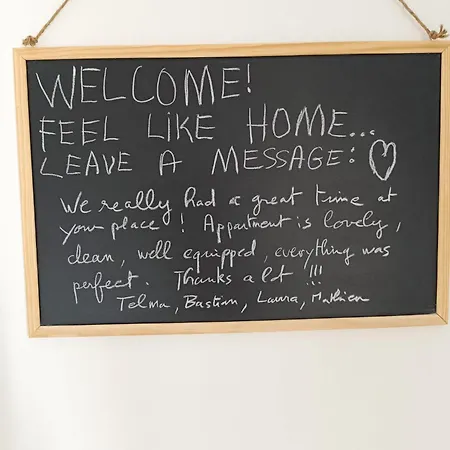 WELCOME!
FEEL LIKE HOME...
LEAVE A MESSAGE:
We really had a great time at
your place! Appartment is lovely,
clean, well equipped, everything was
perfect. Thanks a lot !!!
Telma, Bastian, Laura, Mathieu